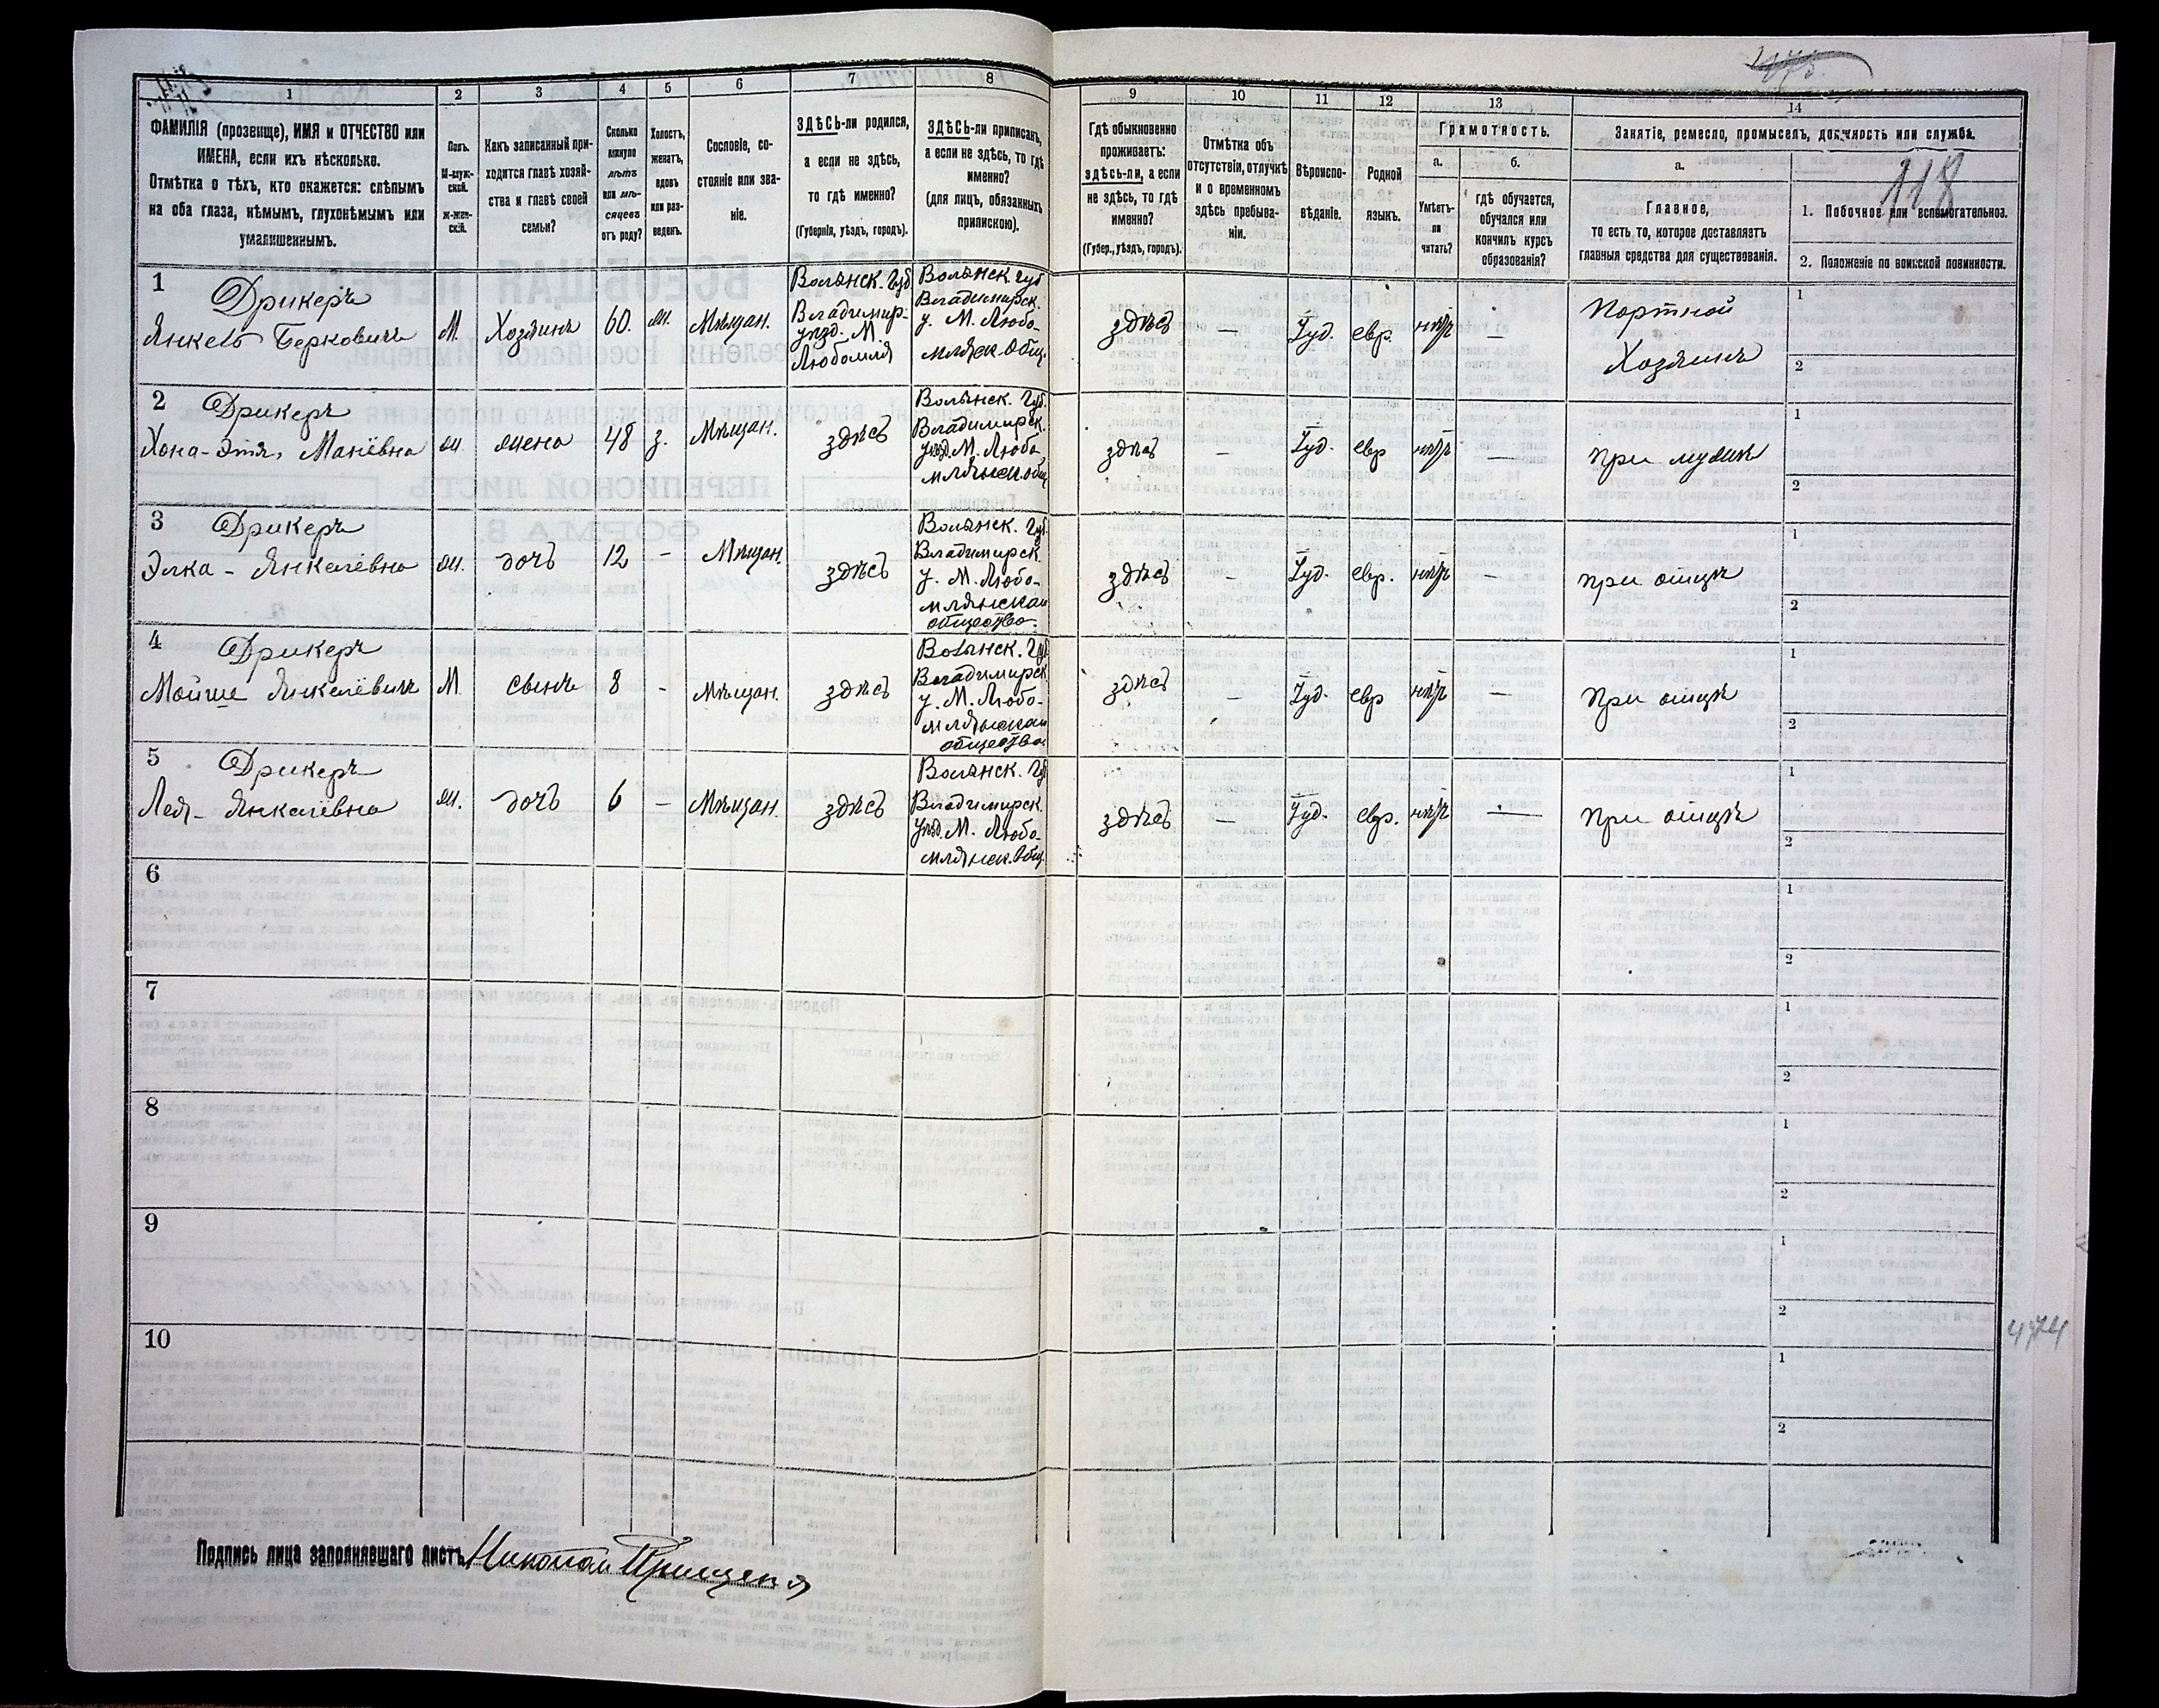 1
2
3
4
5
6
7
8
9
10
11
12
13
14
ФАМИЛІЯ (прозвище), ИМЯ и ОТЧЕСТВО или
ИМЕНА, если ихъ нѣсколько.
Отмѣтка о тѣхъ, кто окажется: слѣпымъ
на оба глаза, нѣмымъ, глухонѣмымъ или
умалишеннымъ.
Полъ.
М-муж-
ской.
Ж-жен-
скій.
Какъ записанный при-
ходится главѣ хозяй-
ства и главѣ своей
семьи?
Сколько
минуло
лѣтъ
или мѣ-
сяцевъ
отъ роду?
Холостъ,
женатъ,
вдовъ
или раз-
веденъ.
Сословіе, со-
стояніе или зва-
ніе.
ЗДѢСЬ-ли родился,
а если не здѣсь,
то гдѣ именно?
(Губернія, уѣздъ, городъ).
ЗДѢСЬ-ли приписанъ,
а если не здѣсь, то гдѣ
именно?
(для лицъ, обязанныхъ
припискою).
Гдѣ обыкновенно
проживаетъ:
здѣсь-ли, а если
не здѣсь, то гдѣ
именно?
(Губер., уѣздъ, городъ).
Отмѣтка объ
отсутствіи, отлучкѣ
и о временномъ
здѣсь пребыва-
ніи.
Вѣроиспо-
вѣданіе.
Родной
языкъ.
Грамотность.
а.
Умѣетъ-
ли
читать?
б.
гдѣ обучается,
обучался или
кончилъ курсъ
образованія?
Занятіе, ремесло, промыселъ, должность или служба.
а.
Главное,
то есть то, которое доставляетъ
главныя средства для существованія.
118
1. Побочное или вспомогательное.
2. Положеніе по воинской повинности.
1
Дрикеръ
Янкель Берковичъ
М.
Хозяинъ
60.
ж.
Мѣщан.
Волынск. Губ
Владимир.
уѣзд. М.
Любомля
Волынск. Губ
Владимирск.
у. М. Любо-
млянск. Общ.
здѣсь
—
Іуд.
евр.
нѣтъ
—
Портной
Хозяинъ
1
2
2
Дрикеръ
Хана-Этя, Маневна
ж.
жена
48
з.
Мѣщан.
здѣсь
Волынск. Губ.
Владимирск.
уѣзд. М. Любо
млянск. общ
здѣсь
—
Іуд.
евр
нѣтъ
—
при мужѣ
1
2
3
Дрикеръ
Элка - Янкелевна
ж.
дочь
12
-
Мѣщан.
здѣсь
Волынск. Губ.
Владимирск.
у. М. Любо-
млянскаго
общества.
здѣсь
-
Іуд.
евр.
нѣтъ
—
при отцѣ
1
2
4
Дрикеръ
Мойше Янкелевичъ
М.
сынъ
8
-
мѣщан.
здѣсь
Волынск. Губ
Владимирск
у. М. Любо-
млянскаго
общества.
здѣсь
—
Іуд.
евр
нѣтъ
—
При отцѣ
1
2
5
Дрикеръ
Лея - Янкелевна
ж.
дочь
6
—
Мѣщан.
здѣсь
Волынск. Губ
Владимирск.
уѣзд. М. Любо-
млянск. Общ.
здѣсь
—
Іуд.
евр.
нѣтъ
—
при отцѣ
1
2
6
1
2
7
1
2
8
1
2
9
1
2
10
1
2
474
Подпись лица заполнявшаго листъ Николай